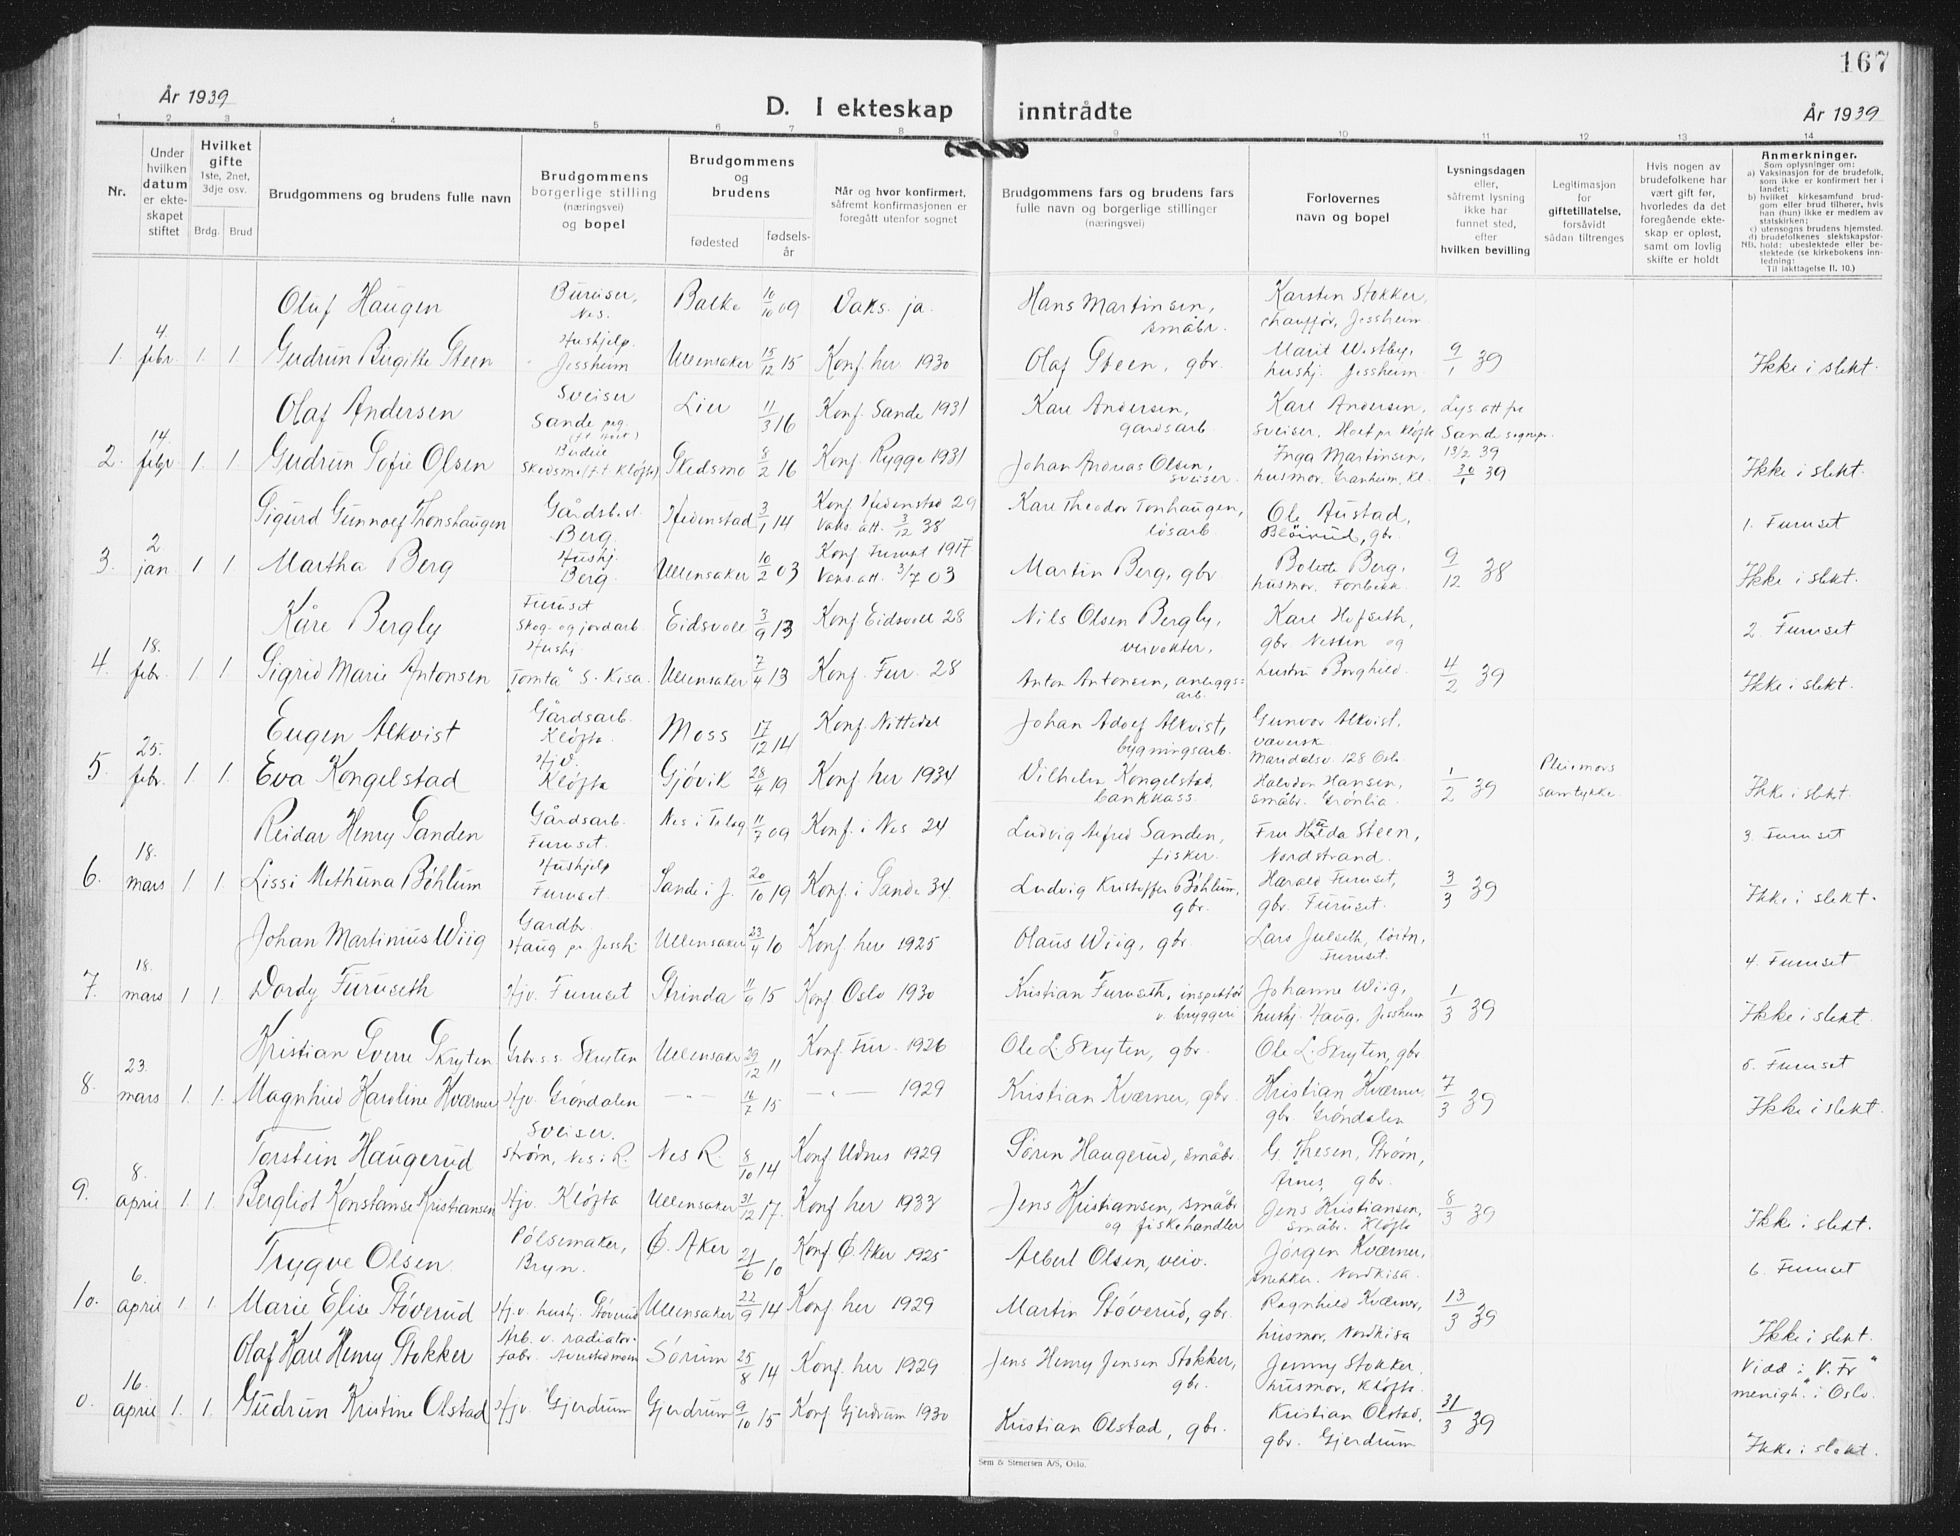 167
År 1939
D. I ekteskap inntrådte
År 1939
1 2 3 4 5 6 7 8 9 10 11 12 13 14
Nr.
Under hvilken datum er ekteskapet stiftet
Hvilket gifte 1ste, 2net, 3dje osv.
Brdg. Brud
Brudgommens og brudens fulle navn
Brudgommens borgerlige stilling (næringsvei) og bopel
Brudgommens og brudens
fødested
fødselsår
Når og hvor konfirmert, såfremt konfirmasjonen er foregått utenfor sognet
Brudgommens fars og brudens fars fulle navn og borgerlige stillinger (næringsvei)
Forlovernes navn og bopel
Lysningsdagen eller, såfremt lysning ikke har funnet sted, efter hvilken bevilling
Legitimasjon for giftetillatelse, forsåvidt sådan tiltrenges
Hvis nogen av brudefolkene har vært gift før, hvorledes da det foregående ekteskap er opløst, samt om lovlig skifte er holdt
Anmerkninger.
Som oplysninger om:
a) Vaksinasjon for de brudefolk, som ikke er konfirmert her i landet;
b) hvilket kirkesamfund brudgom eller brud tilhører, hvis han (hun) ikke er medlem av statskirken;
c) utensogns brudens hjemsted.
d) brudefolkenes slektskapsforhold: ubeslektede eller beslektede (se kirkebokens innledning:
NB. Til iakttagelse II. 10.)
Olaf Haugen Bureiser, Nes. Balke 10/10 09 Vaks. ja. Hans Martinsen, småbr. Karsten Stokker, chauffør, Jessheim
1. 4. febr. 1. 1. Gudrun Birgitte Steen Hushjelp. Jessheim Ullensaker 15/12 15 Konf. her 1930 Olaf Steen, gbr. Marit Westby, hushj. Jessheim 9/1 39 Ikke i slekt.
Olaf Andersen Sveiser Sande prg. Lier 11/3 16 Konf. Sande 1931 Karl Andersen, gardsarb. Karl Andersen, sveiser, Hoel pr. Kløfta Lys att fra Sande sognepr. 13/2 39
2. 14. febr 1. 1. Gudrun Sofie Olsen Budeie Skedsmo (f.t. Kløfta) Skedsmo 8/2 16 Konf. Rygge 1931 Johan Andreas Olsen, sveiser. Inga Martinsen, husmor, Granheim, Kl. 30/1 39 Ikke i slekt.
Sigurd Gunnolf Thonshaugen Gårdsbest. Berg. Hedenstad 3/1 14 Konf. Hedenstad 29 Vaks. att. 3/12 38 Karl Theodor Tonhaugen, løsarb Ole Austad, gbr. 1. Furuset
3. 2. jan 1 1 Martha Berg Hushj. Berg. Ullensaker 10/2 03 Konf. Furuset 1917 Vaks. att. 3/7 03 Martin Berg, gbr. Bolette Berg, husmor, Fonbekk 9/12 38 Ikke i slekt.
Kåre Bergly Furuset Skog- og jordarb. Eidsvoll 3/9 13 Konf. Eidsvoll 28 Nils Olsen Bergly, veivokter. Karl Hofseth, gbr. Nestin og 2. Furuset
4. 18. febr. 1. 1. Sigrid Marie Antonsen Hushj. "Tomta" S. Kisa. Ullensaker 7/4 13 Konf. Fur. 28 Anton Antonsen, anleggsarb. hustru Borghild. 4/2 39 Ikke i slekt.
Eugen Alkvist Gårdsarb. Kløfta Moss 17/12 14 Konf. Nittedal Johan Adolf Alkvist, bygningsarb. Gunvor Alkvist, væversk. Maridalsv. 128 Oslo
5. 25. febr. 1. 1. Eva Kongelstad Hjv. Kløfta Gjøvik 28/4 19 Konf. her 1934 Vilhelm Kongelstad, bankkass. Halvdan Hansen, småbr. Grønlia. 1/2 39 Pleiemors samtykke. Ikke i slekt.
Reidar Henry Sanden Gårdsarb. Furuset. 11/7 09 Konf. i Nes 24 Ludvig Alfred Sanden, fisker. Fru Hilda Steen, Nordstrand. 3. Furuset
6. 18. mars 1 1. Lissi Methuna Bøhlum Hushjelp Furuset. Sande i J. 20/10 19 Konf. i Sande 34. Ludvig Kristoffer Bøhlum, gbr. Harald Furuset, gbr. Furuset. 3/3 39 Ikke i slekt.
Johan Martinius Wiig Gardbr. Haug pr. Jessh. Ullensaker 23/4 10 Konf. her 1925 Olaus Wiig, gbr. Lars Julseth, Furuset. 4. Furuset
7. 18. mars 1 1. Dordy Furuseth Hjv. Furuset Strinda 11/9 15 Konf. Oslo 1930 Kristian Furuseth, inspektør v. bryggeri Johanne Wiig, hushj. Haug, Jessheim 1/3 39 Ikke i slekt.
Kristian Sverre Skryten Grbr.s.s. Skryten Ullensaker 29/12 11 Konf. Fur. 1926 Ole L. Skryten, gbr. Ole L. Skryten, gbr 5. Furuset
8. 23. mars 1. 1. Magnhild Karoline Kværner Hjv. Grøndalen — " — 16/7 15 — " — 1929 Kristian Kværner, gbr. Kristian Kværner, gbr. Grøndalen 7/3 39 Ikke i slekt.
Torstein Haugerud Sveiser. Strøm, Nes i R. Nes R. 8/10 14 Konf. Udnes 1929 Søren Haugerud, småbr. G. Thesen, Strøm, Årnes, gbr.
9. 8. april 1. 1. Bergliot Konstanse Kristiansen Hjv. Kløfta Ullensaker 31/12 17. Konf. her 1933 Jens Kristiansen, småbr. og fiskehandler Jens Kristiansen, småbr. Kløfta 8/3 39 Ikke i slekt.
Trygve Olsen Pølsemaker, Bryn. Ø. Aker 21/6 10 Konf. Ø. Aker 1925 Albert Olsen, veiv. Jørgen Kværner, snekker. Nordkisa. 6. Furuset
10. 6. april 1. 1. Marie Elise Støverud Hjv. hushj. Støverud Ullensaker 22/9 14 Konf. her 1929 Martin Støverud, gbr. Ragnhild Kværner, husmor, Nordkisa 13/3 39 Ikke i slekt.
Olaf Kåre Henry Stokker Arb. v. radiatorfabr. Sørum 25/8 14 Konf. her 1929 Jens Henry Jensen Stokker, gbr. Jenny Stokker, husmor, Kløfta. Vidd i "V. Fr menigh." i Oslo.
0. 16. april 1. 1. Gudrun Kristine Olstad Hjv. Gjerdrum Gjerdrum 9/10 15 Konf. Gjerdrum 1930 Kristian Olstad, gbr. Kristian Olstad, gbr. Gjerdrum 31/3 39 Ikke i slekt.
Sem & Stenersen A/S, Oslo.